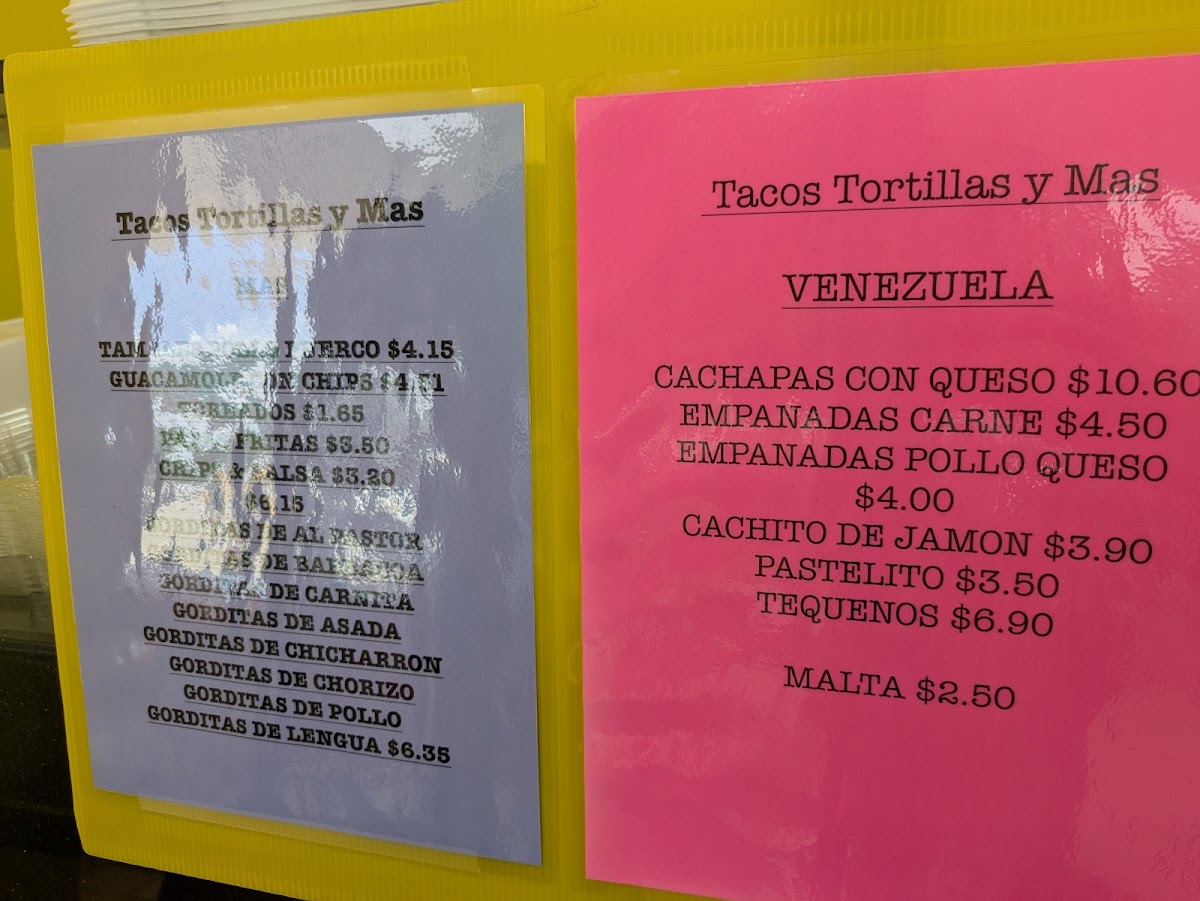 Tacos Tortillas y Mas
MAS
PUERCO $4.15
GUACAMOLE CON CHIPS $4.51
TOREADOS $1.65
FRITAS $3.50
CHIPS & SALSA $3.20
$6.15
GORDITAS DE AL PASTOR
GORDITAS DE BARBACOA
GORDITAS DE CARNITA
GORDITAS DE ASADA
GORDITAS DE CHICHARRON
GORDITAS DE CHORIZO
GORDITAS DE POLLO
GORDITAS DE LENGUA $6.35
Tacos Tortillas y Mas
VENEZUELA
CACHAPAS CON QUESO $10.60
EMPANADAS CARNE $4.50
EMPANADAS POLLO QUESO
$4.00
CACHITO DE JAMON $3.90
PASTELITO $3.50
TEQUENOS $6.90
MALTA $2.50